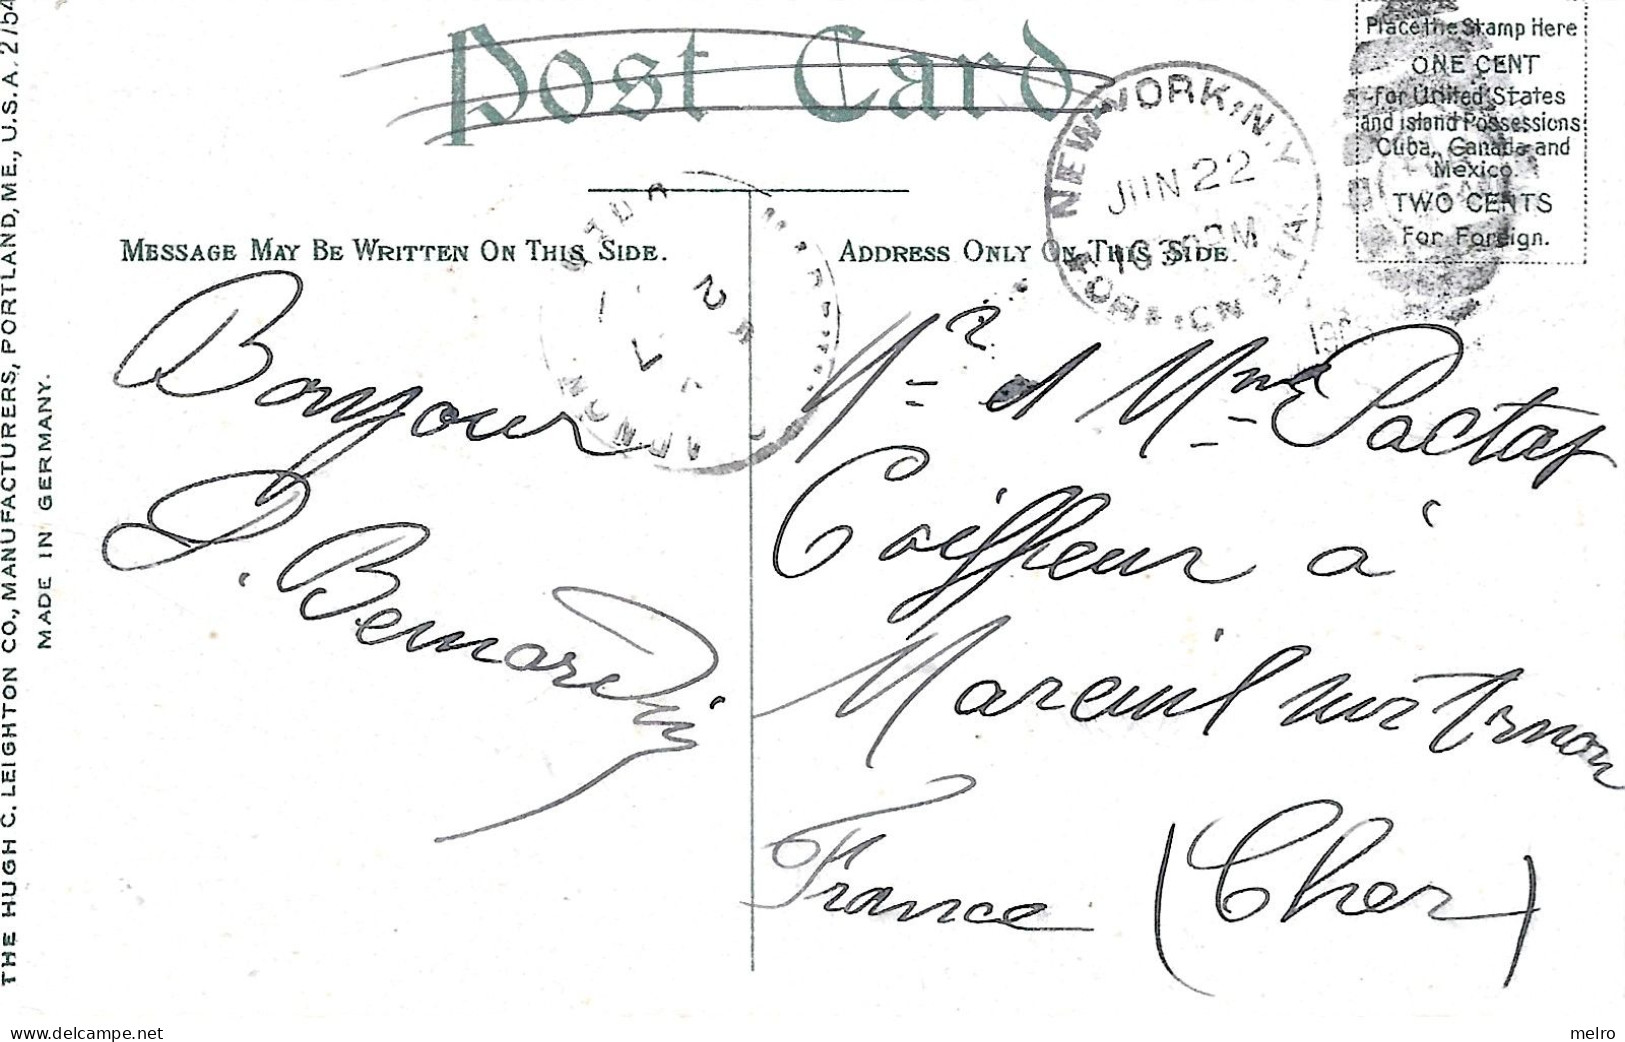 Post Card
Place the Stamp Here
ONE CENT
for United States
and Island Possessions
Cuba, Canada and
Mexico.
TWO CENTS
For Foreign.
NEW YORK, N.Y.
JUN 22
MESSAGE MAY BE WRITTEN ON THIS SIDE.
ADDRESS ONLY ON THIS SIDE.
Bonjour
Mr et Mme Pactat
Coiffeur à
Mareuil sur Arnon
France (Cher)
THE HUGH C. LEIGHTON CO., MANUFACTURERS, PORTLAND, ME., U.S.A.
MADE IN GERMANY.
www.delcampe.net
melro